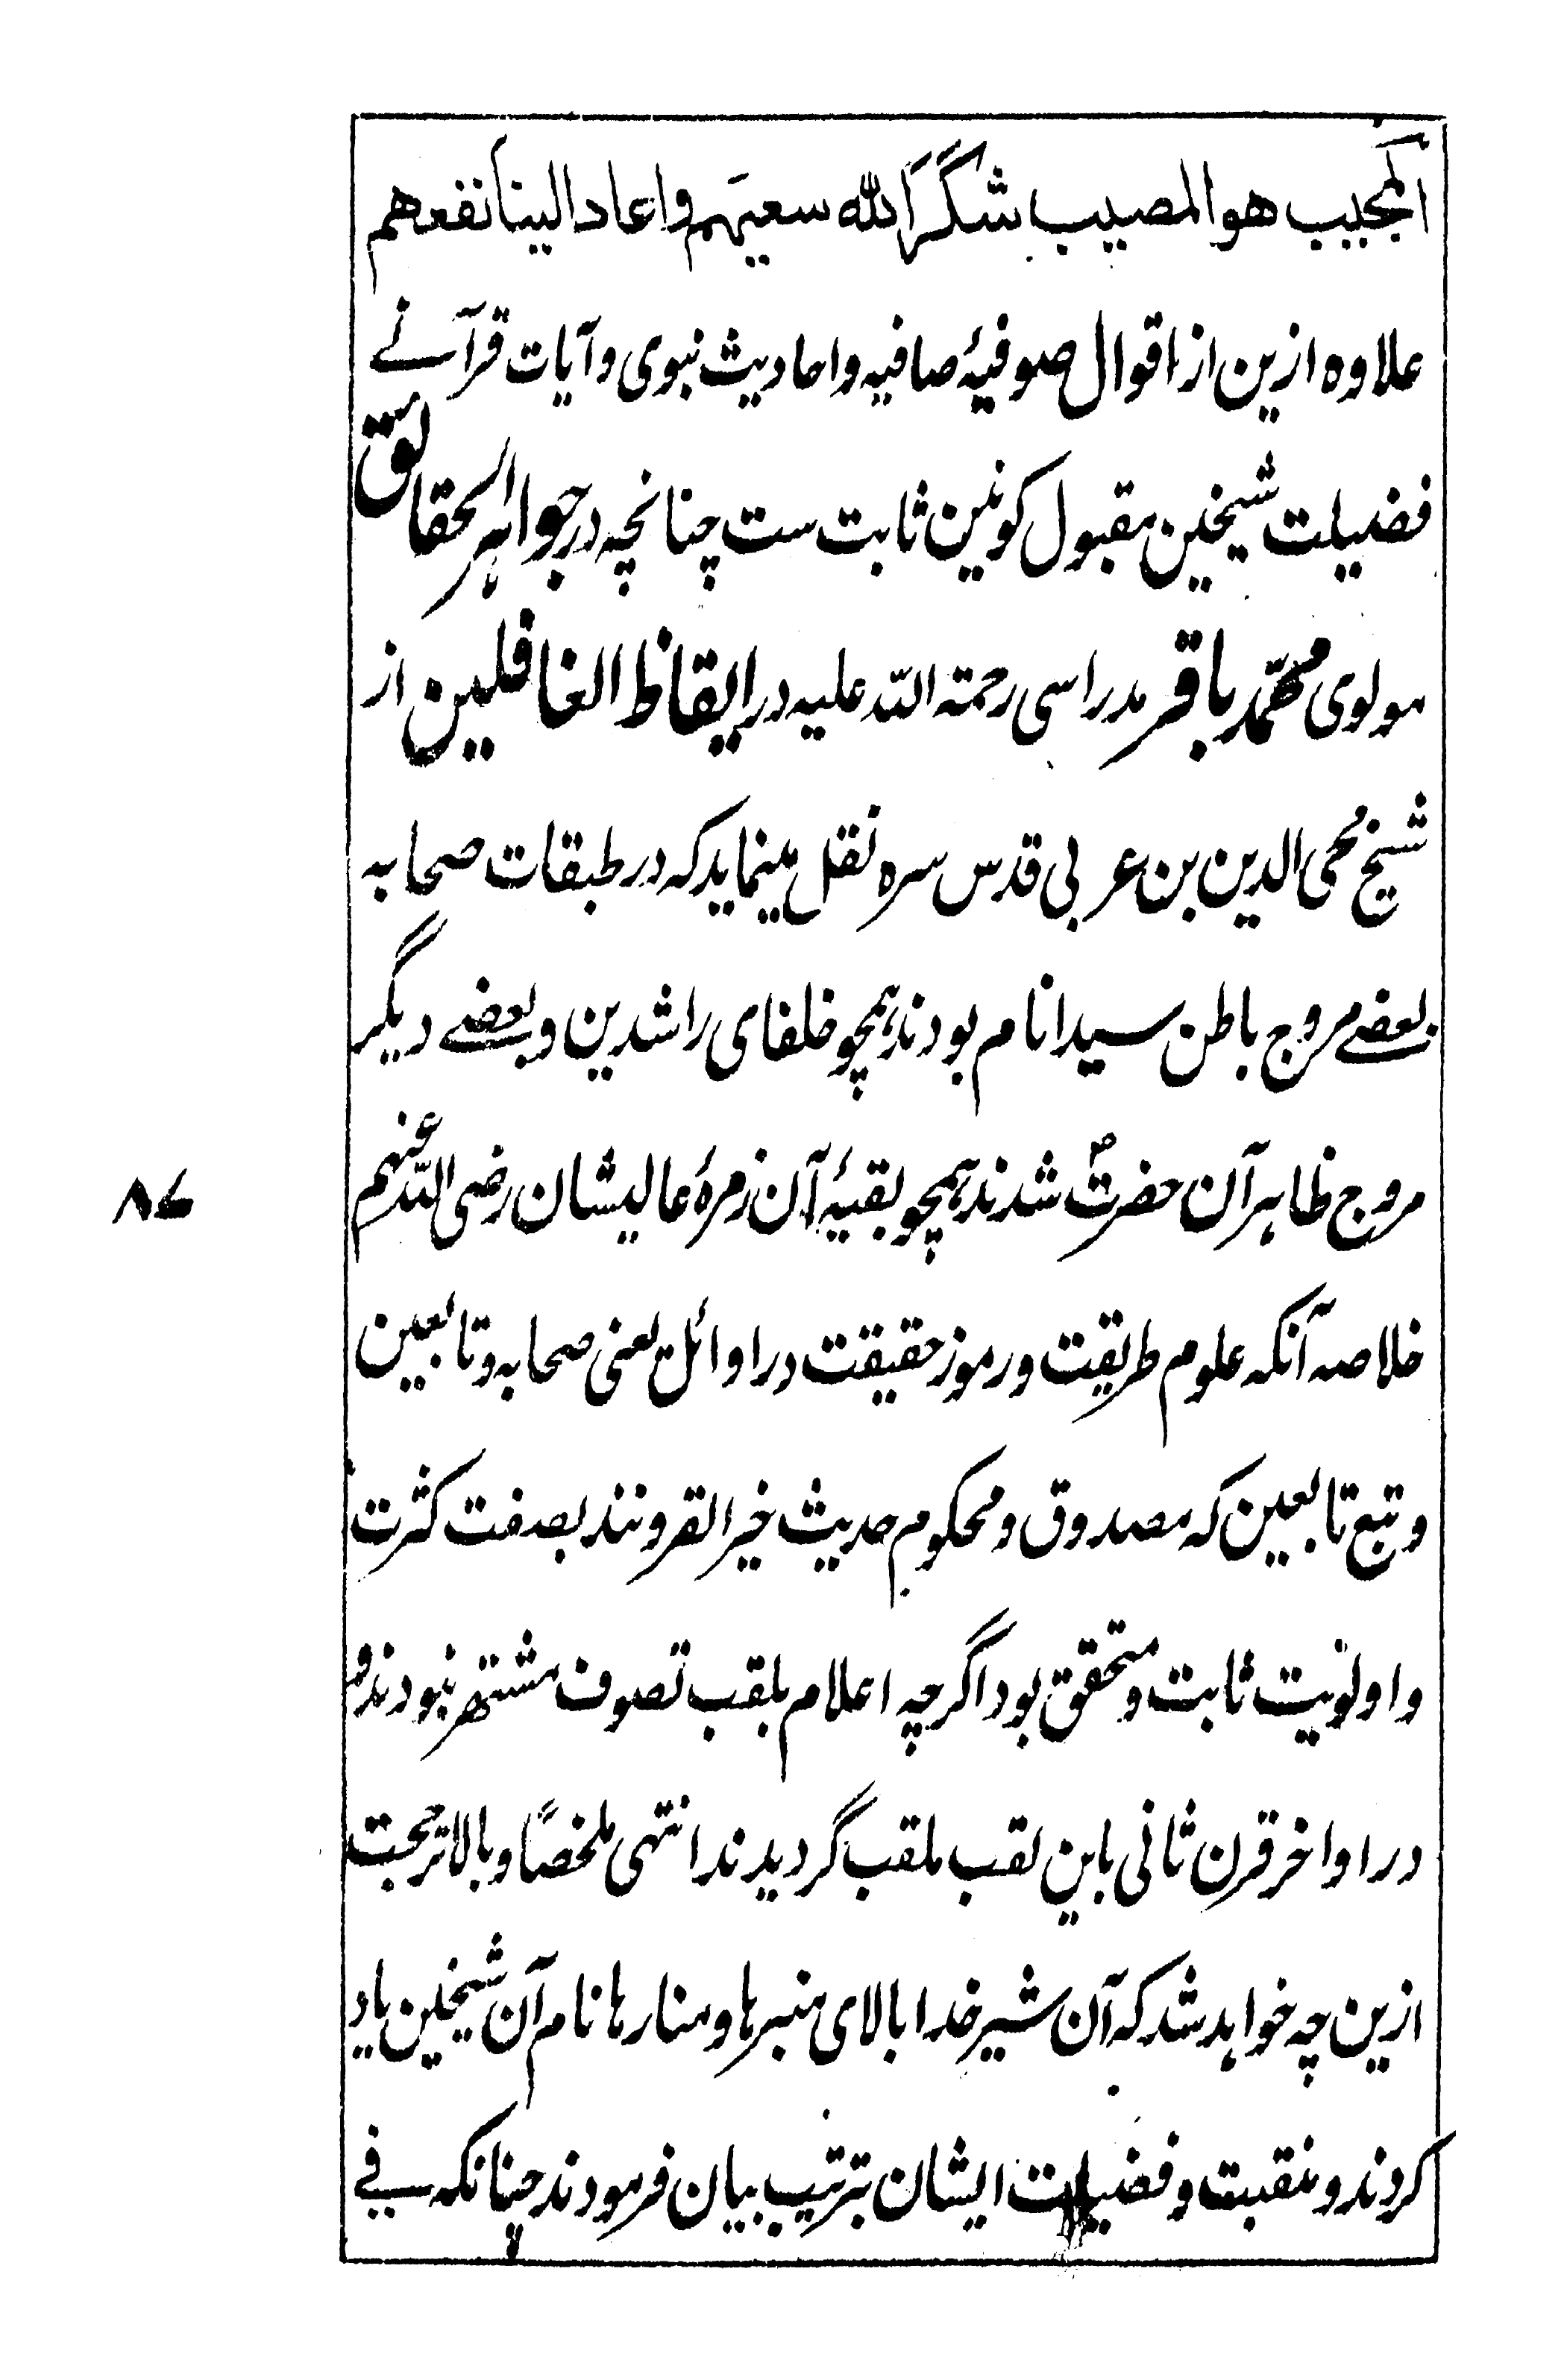 المجیب هو المصیب شکر الله سعیهم واعاد الینا نفعهم
علاوه ازین از اقوال صوفیهٔ صافیه و احادیث نبوی و آیات قرآنے
فضیلت شیخین مقبول کونین ثابت ست چنانچه در جواہر الحقائق
مولوی محمّد باقر مدراسی رحمته اللّه علیه در ایقاظ الغافلین از
شیخ محی الدین بن عربی قدس سره نقل مینماید که در طبقات صحابه
بعضے مروج باطن سید انام بودند همچو خلفای راشدین و بعضے دیگر
مروج ظاهر آن حضرتؐ شدند همچو بقیهٔ آن زمرهٔ عالیشان رضی اللّه عنهم
خلاصه آنکه علوم طریقت و رموز حقیقت در اوائل یعنی صحابه و تابعین
و تبع تابعین که مصدوق و محکوم حدیث خیر القرونند بصفت کثرت
و اولویت ثابت و متحقق بود اگرچه اعلام بلقب تصوف مشتهر نبودند و
در اواخر قرن ثانی باین لقب ملقب گردیدند انتهی ملخصاً و بالاتر حجت
ازین چه خواهد شد که آن شیر خدا بالای منبرها و منارها نام آن شیخین یاد
کردند و منقبت و فضیلت ایشان بترتیب بیان فرمودند چنانکه سے فے
۸۷